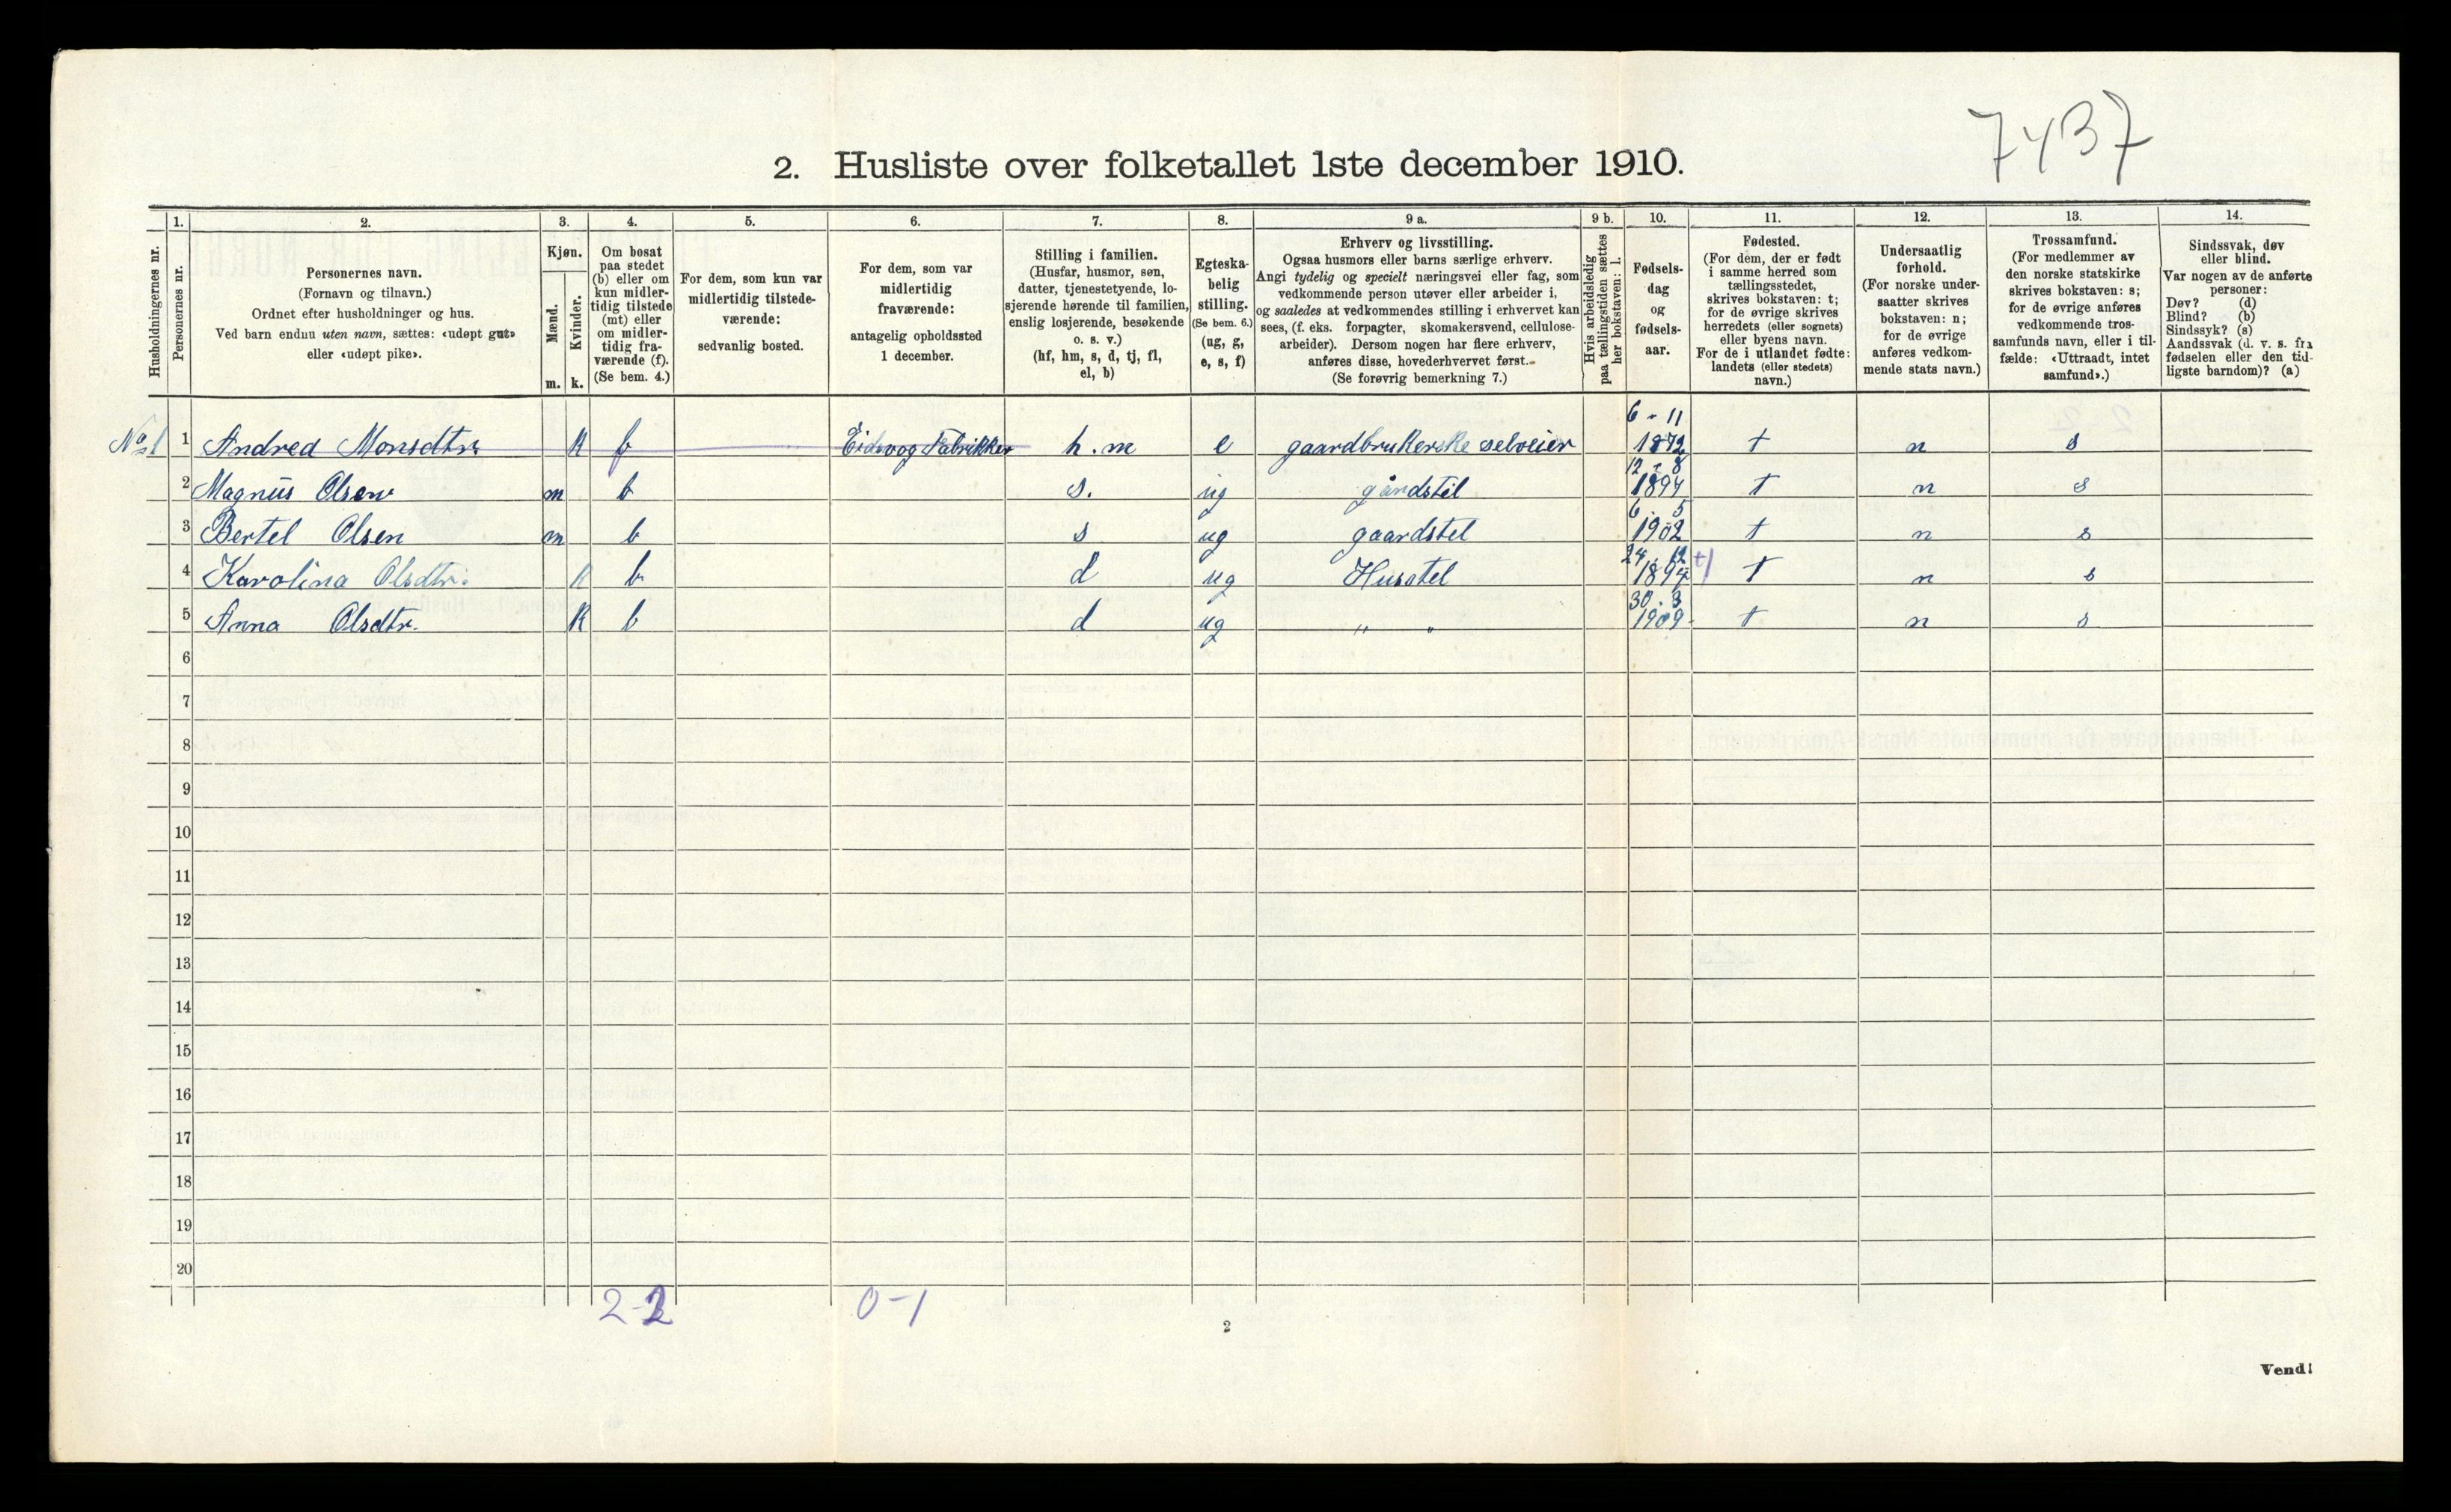 7437
2. Husliste over folketallet 1ste december 1910.
Husholdningernes nr.
1.
Personernes nr.
2.
Personernes navn.
(Fornavn og tilnavn.)
Ordnet efter husholdninger og hus.
Ved barn endnu uten navn, sættes: «udøpt gut»
eller «udøpt pike».
3.
Kjøn.
Mænd.
Kvinder.
m. k.
4.
Om bosat
paa stedet
(b) eller om
kun midler-
tidig tilstede
(mt) eller
om midler-
tidig fra-
værende (f).
(Se bem. 4.)
5.
For dem, som kun var
midlertidig tilstede-
værende:
sedvanlig bosted.
6.
For dem, som var
midlertidig
fraværende:
antagelig opholdssted
1 december.
7.
Stilling i familien.
(Husfar, husmor, søn,
datter, tjenestetyende, lo-
sjerende hørende til familien,
enslig losjerende, besøkende
o. s. v.)
(hf, hm, s, d, tj, fl,
el, b)
8.
Egteska-
belig
stilling.
(Se bem. 6.)
(ug, g,
e, s, f)
9 a.
Erhverv og livsstilling.
Ogsaa husmors eller barns særlige erhverv.
Angi tydelig og specielt næringsvei eller fag, som
vedkommende person utøver eller arbeider i,
og saaledes at vedkommendes stilling i erhvervet kan
sees, (f. eks. forpagter, skomakersvend, cellulose-
arbeider). Dersom nogen har flere erhverv,
anføres disse, hovederhvervet først.
(Se forøvrig bemerkning 7.)
9 b.
Hvis arbeidsledig
paa tællingstiden sættes
her bokstaven: l.
10.
Fødsels-
dag
og
fødsels-
aar.
11.
Fødested.
(For dem, der er født
i samme herred som
tællingsstedet,
skrives bokstaven: t;
for de øvrige skrives
herredets (eller sognets)
eller byens navn.
For de i utlandet fødte:
landets (eller stedets)
navn.)
12.
Undersaatlig
forhold.
(For norske under-
saatter skrives
bokstaven: n;
for de øvrige
anføres vedkom-
mende stats navn.)
13.
Trossamfund.
(For medlemmer av
den norske statskirke
skrives bokstaven: s;
for de øvrige anføres
vedkommende tros-
samfunds navn, eller i til-
fælde: «Uttraadt, intet
samfund».)
14.
Sindssvak, døv
eller blind.
Var nogen av de anførte
personer:
Døv? (d)
Blind? (b)
Sindssyk? (s)
Aandssvak (d. v. s. fra
fødselen eller den tid-
ligste barndom)? (a)
6 - 11
No 1 1 Andrea Monsdtr. K f Eidsvog Fabrikker h.m e gaardbrukerske selveier 1872 t n s
12 - 8
2 Magnus Olsen m b s. ug gårdstel 1894 t n s
6. 5
3 Bertel Olsen m b s ug gaardstel 1902 t n s
24. 12
4 Karolina Olsdtr. K b d ug Husstel 1897 t n s
30. 3
5 Anna Olsdtr. K b d ug " " 1909 t n s
6
7
8
9
10
11
12
13
14
15
16
17
18
19
20
2-2 0-1
2
Vend!